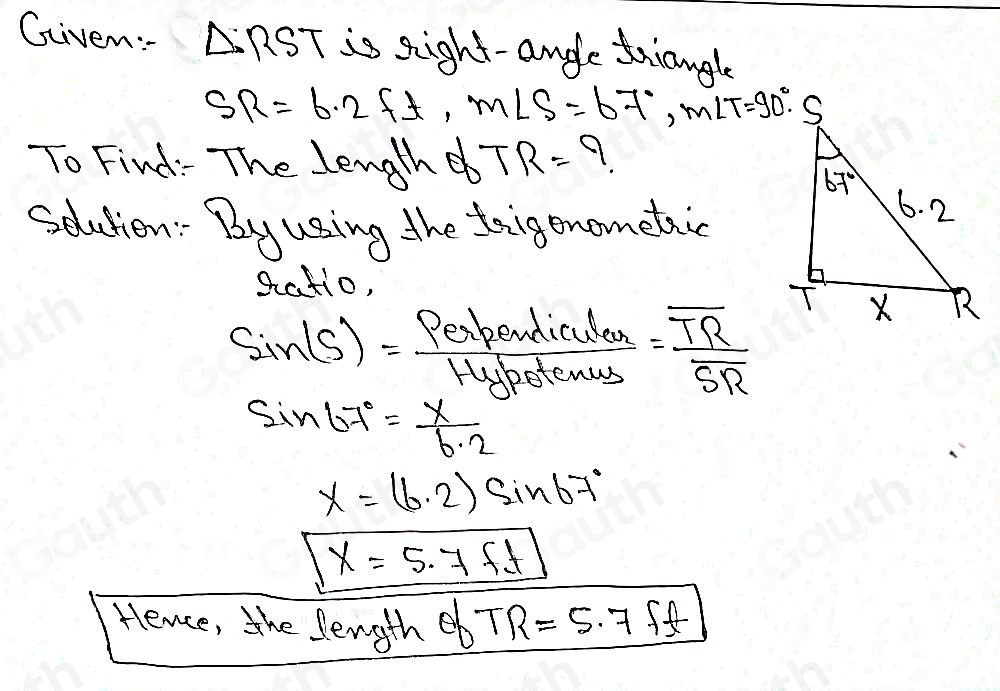 Given:- △RST is right-angle triangle
SR = 6.2 ft, m∠S = 67°, m∠T=90°.
To Find:- The length of TR = ?
Solution:- By using the trigonometric
ratio,
Sin(S) = Perpendicular / Hypotenus = TR / SR
Sin 67° = X / 6.2
X = (6.2) Sin 67°
X = 5.7 ft
Hence, the length of TR = 5.7 ft
S
67°
6.2
T
X
R
Gauth